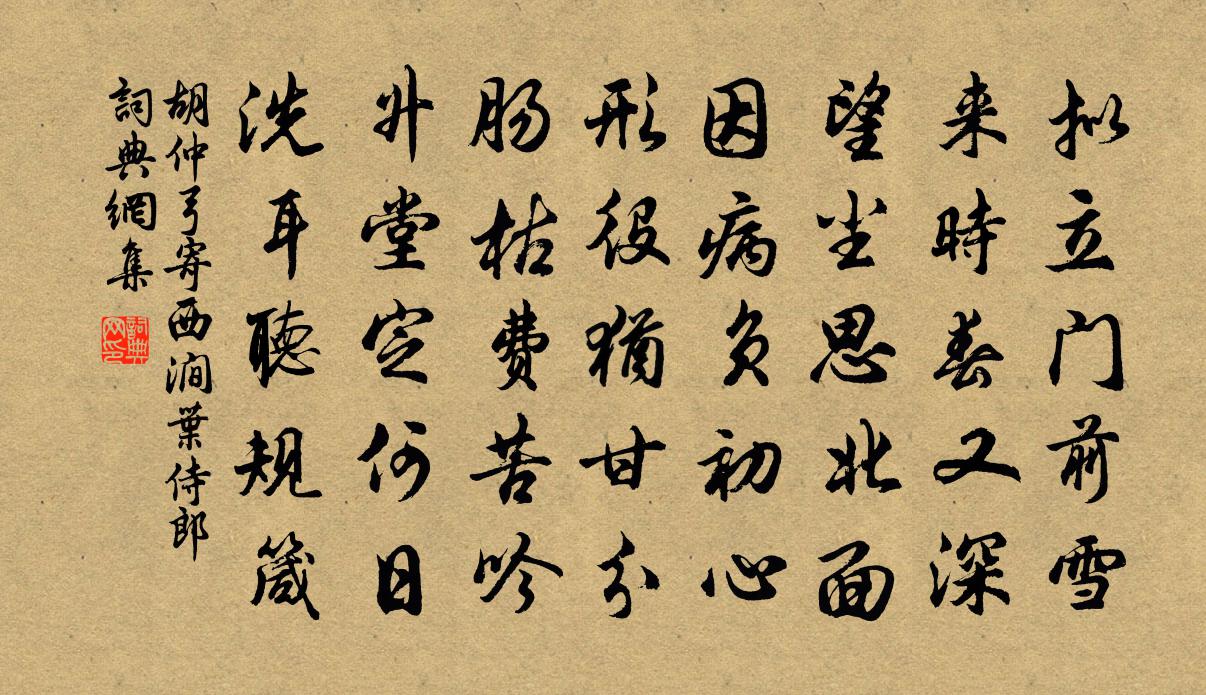 拟立门前雪
来時春又深
望尘思北面
因病负初心
形役猶甘分
肠枯费苦吟
升堂定何日
洗耳聽規箴
胡仲弓寄西澗葉侍郎
詞典網集
詞典网印